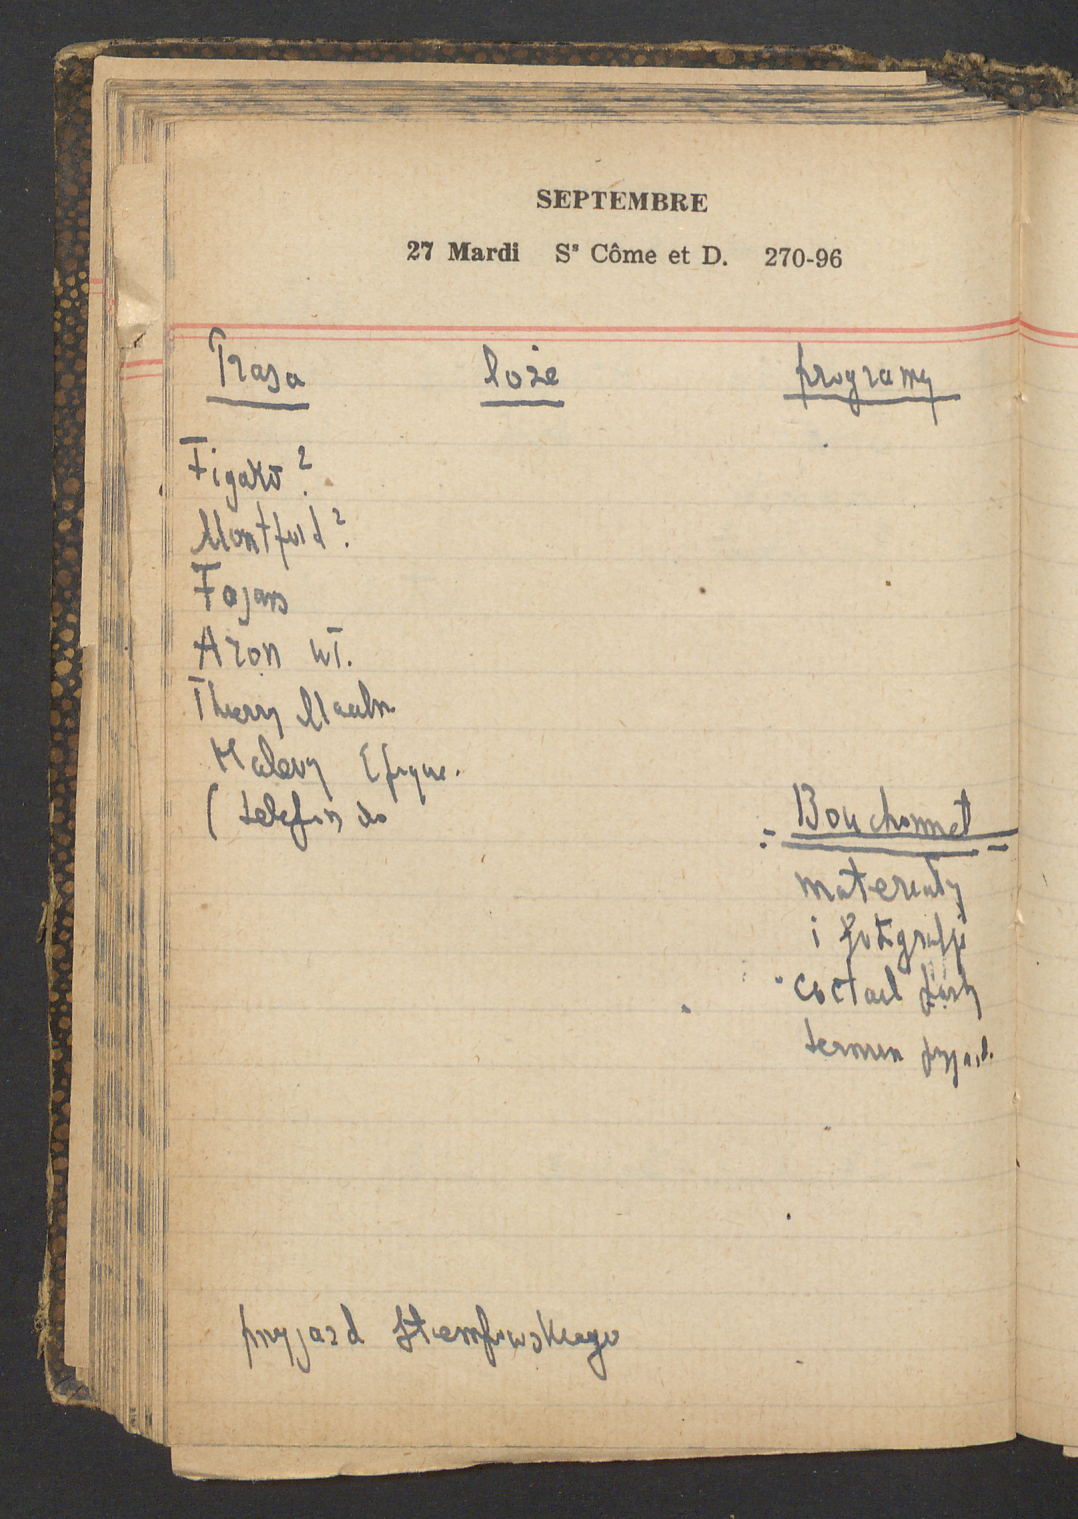 SEPTEMBRE
27 Mardi Sˢ Côme et D. 270-96
Prasa loże programy
Figaro?
Montfort?
Fajans
Aron wt.
Thierry Maulnier
Halevy
(telefon do
Bouchonnet
materiały
i fotografje
coctail party
termin przyjazd.
przyjazd Stempowskiego